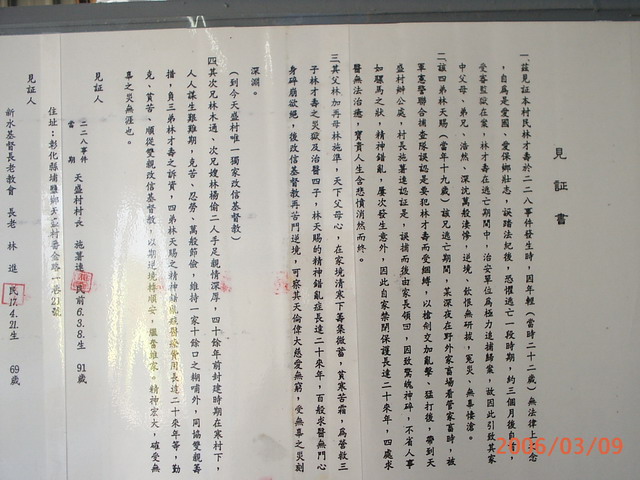 見証書
一、茲見証本村民林才壽於二二八事件發生時，因年輕（當時二十二歲）無法律上之念
，自為是愛國、愛保鄉壯志，誤踏法紀後，恐懼逃亡一段時期，約三個月後自首，
受審監獄在案，林才壽在逃亡期間中，治安單位為極力追捕歸案，故因此引致其家
中父母、弟兄、浩然、深沈萬般淒慘，逆境、飲恨無研拔，冤災、無辜悽滄。
二、該四弟林天賜（當年十九歲）該兄逃亡期間，某深夜在野外家畜場看管家畜時，被
軍憲警聯合捕查隊誤認是要犯林才壽而受綑縛，以槍劍交加亂擊、猛打後，帶到天
盛村辦公處，村長施署遠認証是，誤捕而後由家長領回，因致驚魄神碎，不省人事
如驛馬之狀，精神錯亂，屢次發生意外，因此自家禁閉保護長達二十來年，四處求
醫無法治癒，寶貴人生含悲憤消然而終。
三、其父林加再母林施準，天下父母心，在家境清寒下籌集微蓄，貧寒苦霜，為營救三
子林才壽之災獄及治醫四子，林天賜的精神錯亂症長達二十來年，百般求醫無門心
身碎崩欲絕，後改信基督教再苦鬥逆境，可察其天倫偉大慈愛無窮，受無辜之災刻
深淵。
（到今天盛村唯一獨家改信基督教）
四、其次兄林木通、次兄嫂林楊偷二人手足親情深厚，四十餘年前封建時期在寒村下，
人人謀生艱難期，克苦、忍勞、萬般節儉，維持一家十餘口之糊嘴外，同協雙親籌
措，負三弟林才壽之訴資，四弟林天賜之精神錯亂病醫療費用長達二十來年等，勤
克、貧苦、順從雙親改信基督教，以期逆境轉順安，繼香維家，精神宏大，確受無
辜之災無涯也。
見証人
二二八事件
當期
天盛村村長 施署遠 民前6.3.8.生 91歲
住址：彰化縣埔鹽鄉天盛村番金路一巷21號
見証人
新水基督長老教會 長老 林進 民17.4.21.生 69歲
2006/03/09